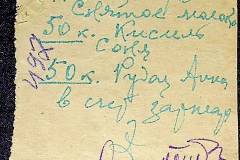 Снятое молоко
50 к. Кисель
Соня
50 к. Рудас Анна
в счет зарплат
497